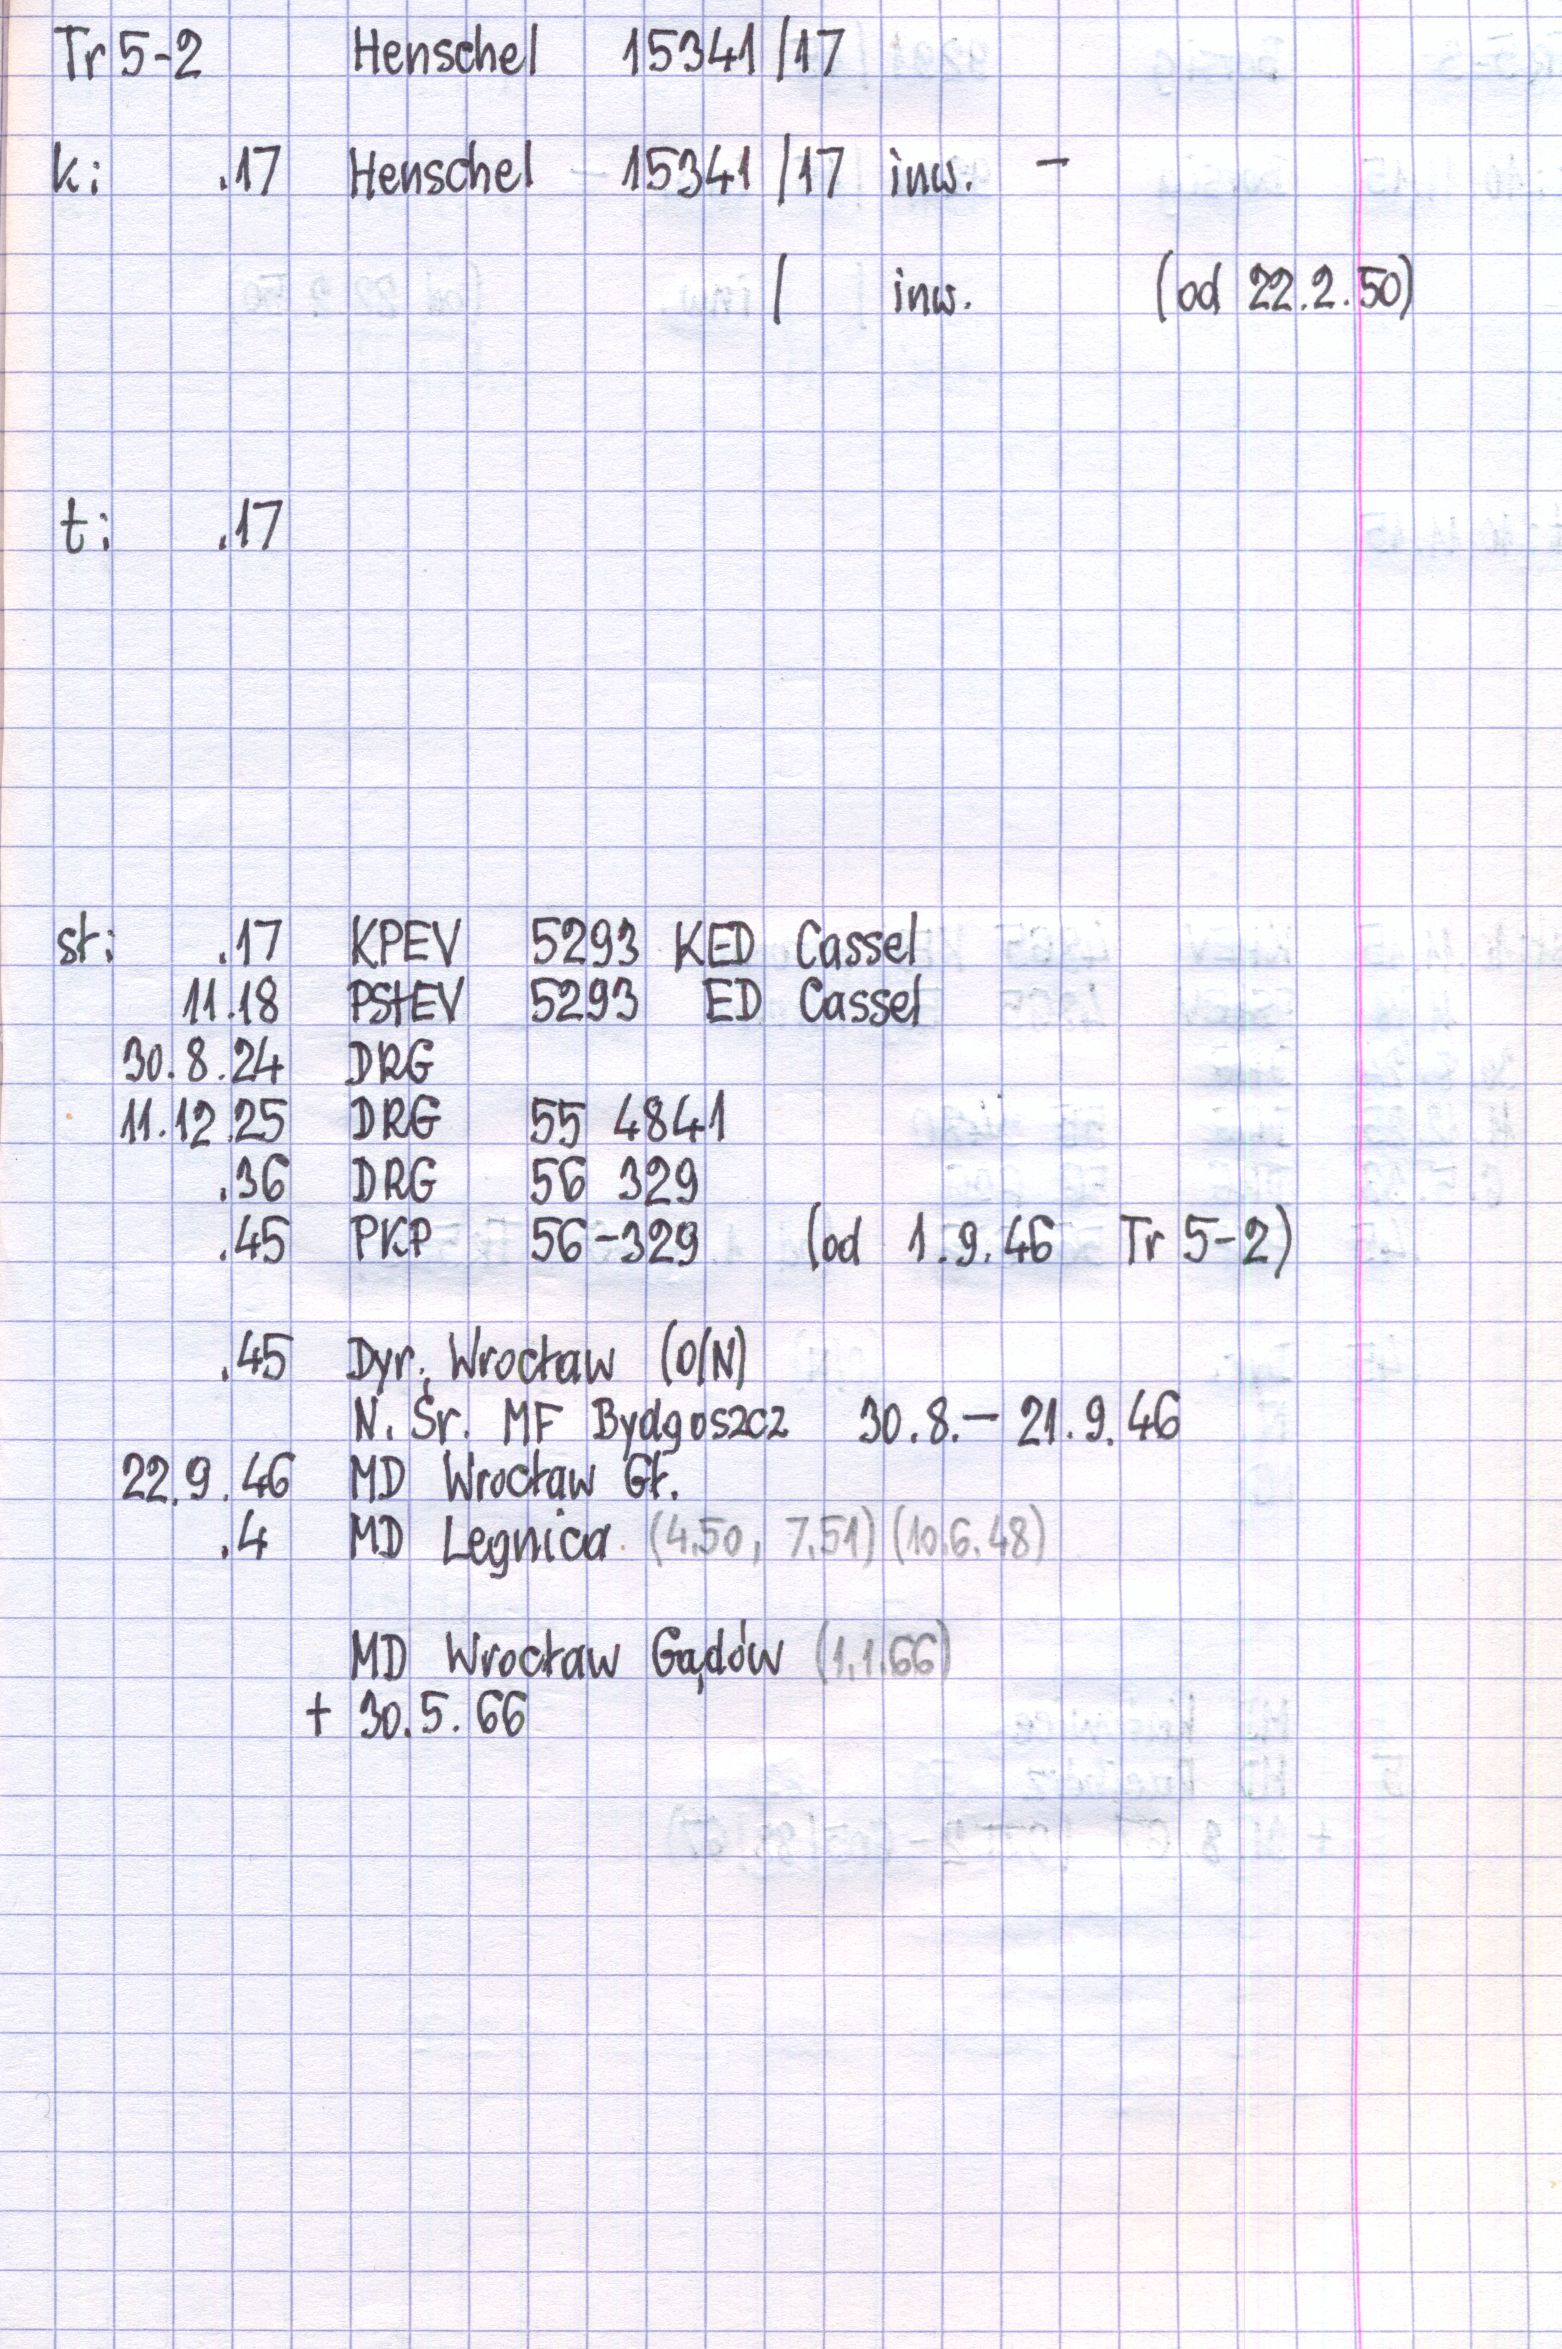 Tr 5-2 Henschel 15341/17
k: .17 Henschel 15341/17 inw. -
/ inw. (od 22.2.50)
t: .17
st: .17 KPEV 5293 KED Cassel
11.18 PStEV 5293 ED Cassel
30.8.24 DRG
11.12.25 DRG 55 4841
.36 DRG 56 329
.45 PKP 56-329 (od 1.9.46 Tr 5-2)
.45 Dyr. Wrocław (O/N)
N. Śr. MF Bydgoszcz 30.8.- 21.9.46
22.9.46 MD Wrocław Gł.
.4 MD Legnica (4.50, 7.51) (10.6.48)
MD Wrocław Gądów (1.1.66)
+ 30.5.66